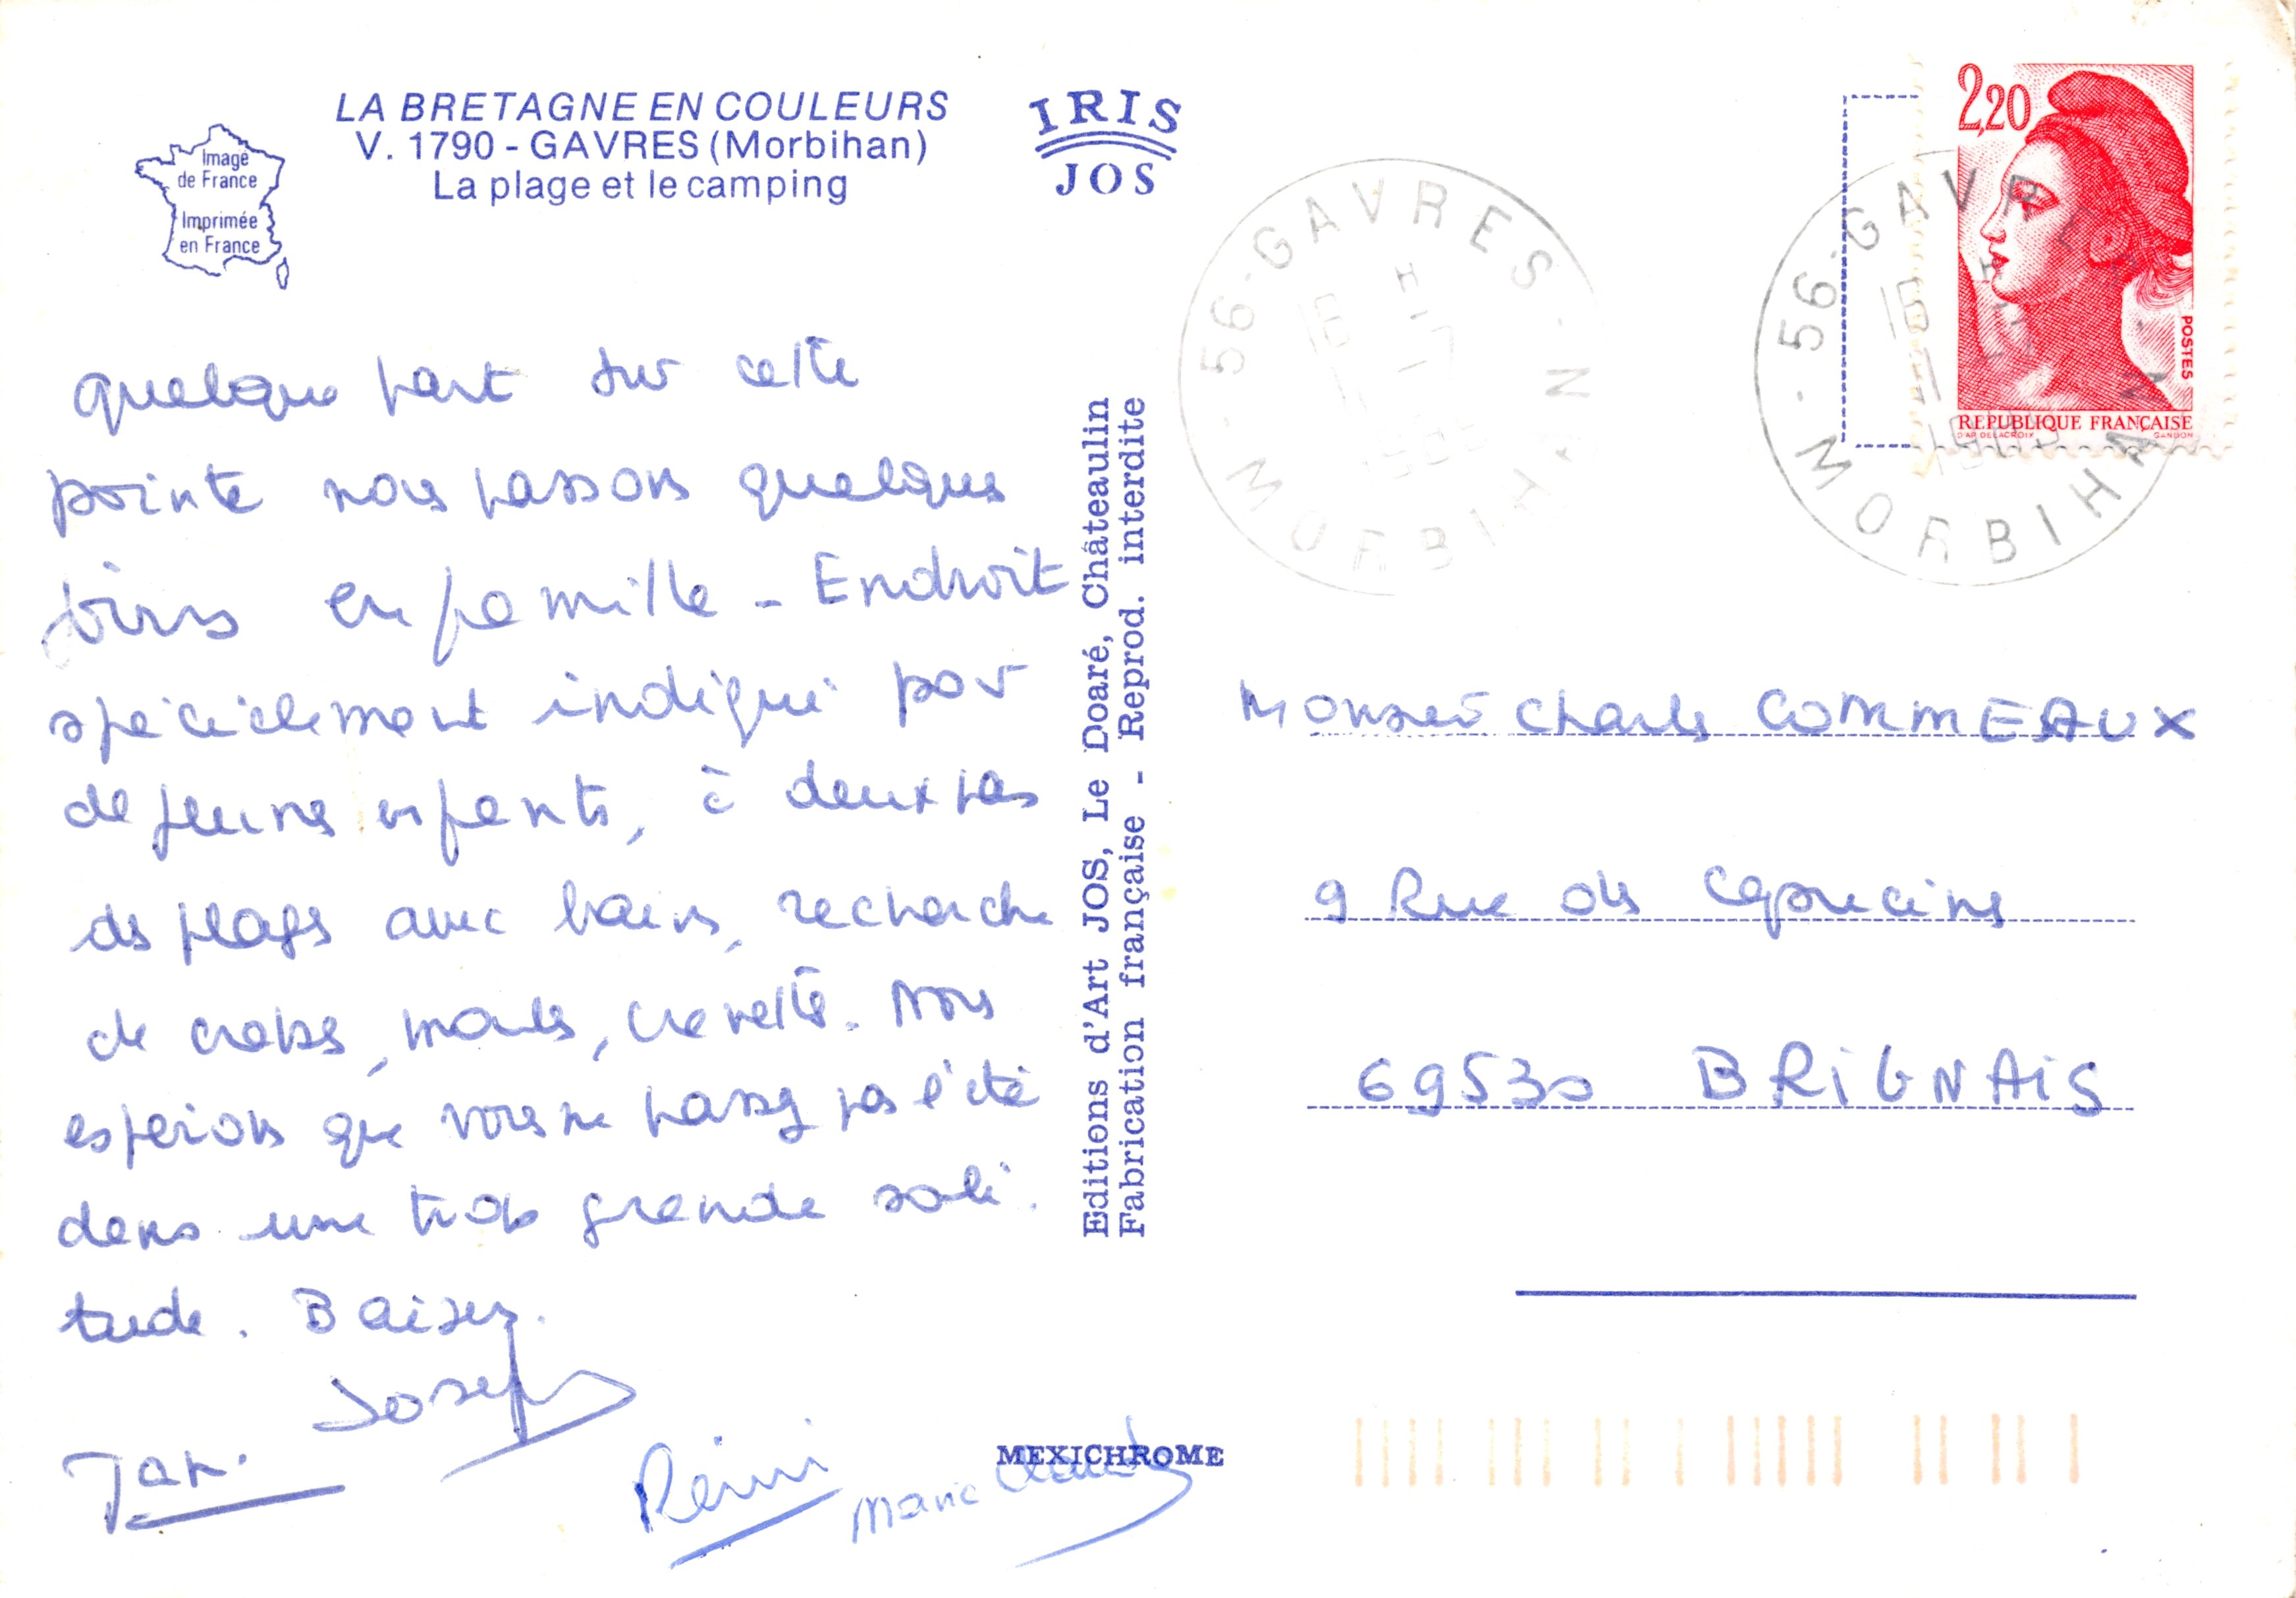 LA BRETAGNE EN COULEURS
V. 1790 - GAVRES (Morbihan)
La plage et le camping
Image
de France
Imprimée
en France
IRIS
JOS
quelque part sur cette
pointe nous passons quelques
jours en famille - Endroit
spécialement indiqué pour
de jeunes enfants, à deux pas
des plages avec bains, recherche
de crabes, moules, crevettes. Nous
espérons que vous ne passez pas l'été
dans une trop grande soli
tude. Baisers.
Joseph
Jan.
Rémi
Marie Claude
Editions d'Art JOS, Le Doaré, Châteaulin
Fabrication française - Reprod. interdite
MEXICHROME
56 - GAVRES
MORBIHAN
56 - GAVRES
MORBIHAN
2,20
POSTES
REPUBLIQUE FRANÇAISE
D'AP. DELACROIX
GANDON
Monsieur Charles COMMEAUX
9 Rue des Capucins
69530 BRIGNAIS